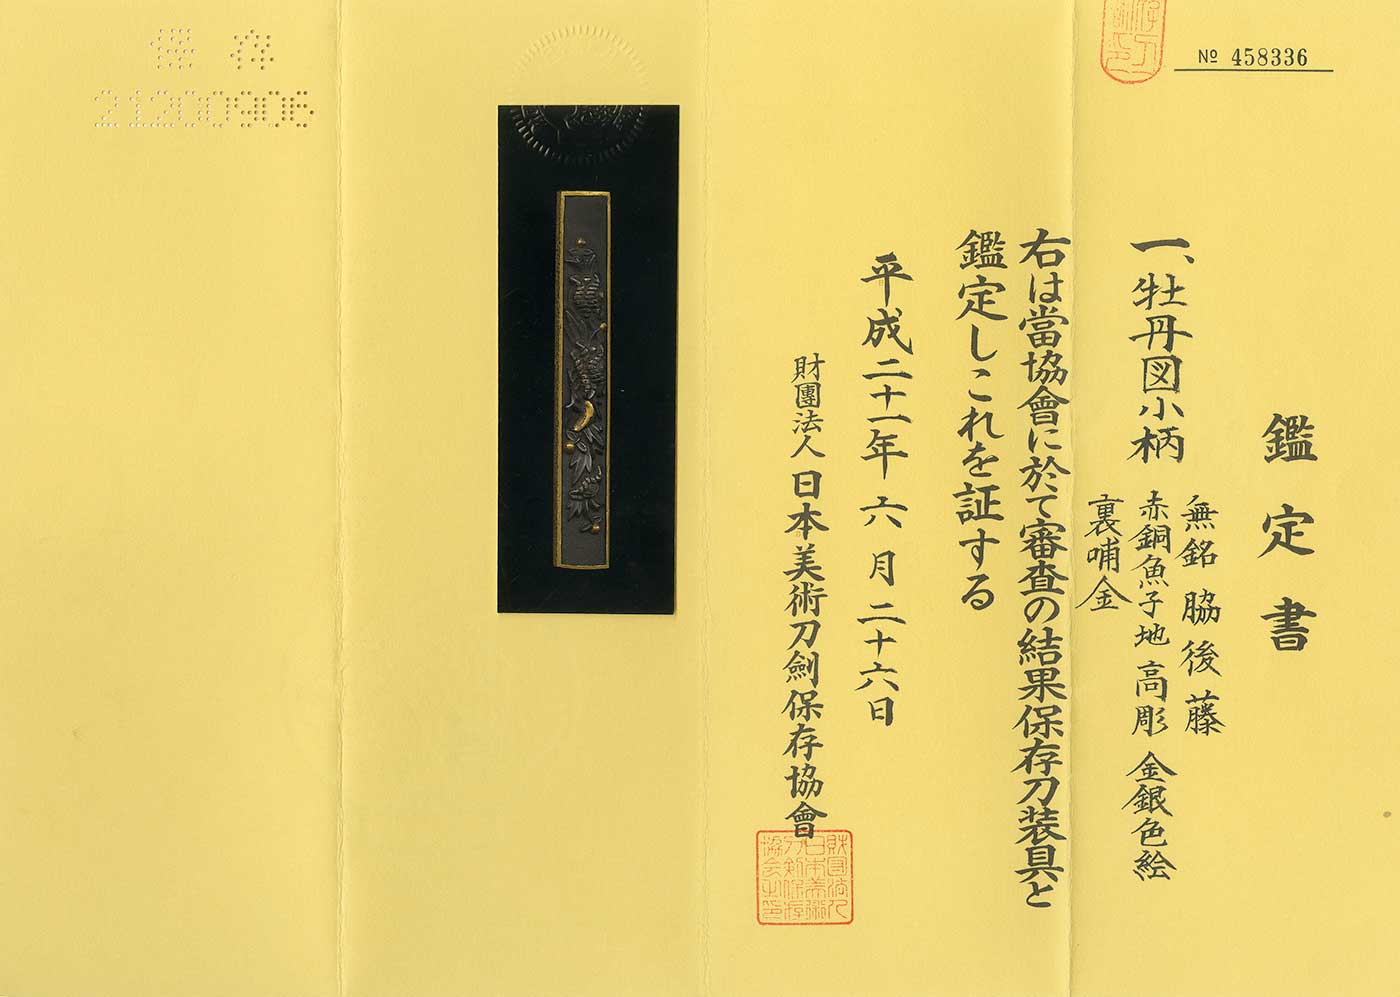 № 458336
鑑定書
一、牡丹図小柄
無銘 脇後藤
赤銅魚子地 高彫 金銀色絵
裏哺金
右は當協會に於て審査の結果保存刀装具と
鑑定しこれを証する
平成二十一年六月二十六日
財團法人 日本美術刀劍保存協會
財団法人日本美術刀剣保存協会之印
保存
21200906